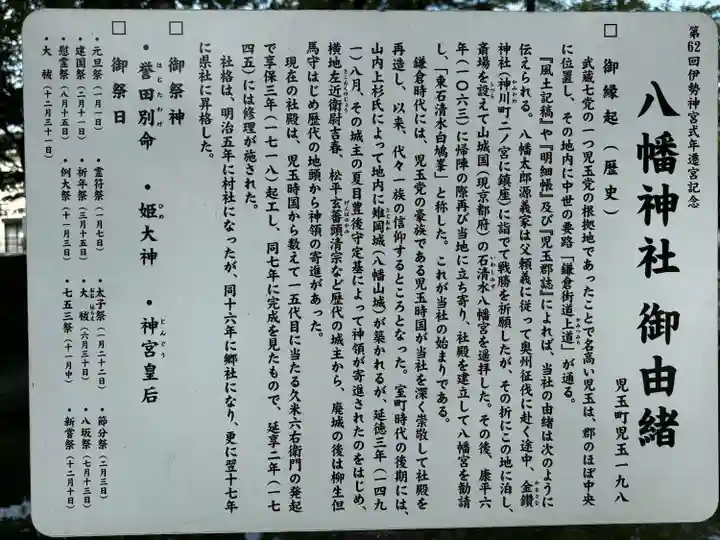 第62回伊勢神宮式年遷宮記念
八幡神社 御由緒
児玉町児玉一九八
□ 御縁起(歴史)
武蔵七党の一つ児玉党の根拠地であったことで名高い児玉は、郡のほぼ中央
に位置し、その地内に中世の要路「鎌倉街道上道」が通る。
かみつみち
『風土記稿』や『明細帳』及び『児玉郡誌』によれば、当社の由緒は次のように
伝えられる。八幡太郎源義家は父頼義に従って奥州征伐に赴く途中、金鑽
かなさな
神社(神川町二ノ宮に鎮座)に詣でて戦勝を祈願したが、その折にこの地に泊し、
かみかわ
斎場を設えて山城国(現京都府)の石清水八幡宮を遥拝した。その後、康平六
しつら
いわしみず
年(一〇六三)に帰陣の際再び当地に立ち寄り、社殿を建立して八幡宮を勧請
し、「東石清水白鳩峯」と称した。これが当社の始まりである。
鎌倉時代には、児玉党の豪族である児玉時国が当社を深く崇敬して社殿を
再造し、以来、代々一族の信仰するところとなった。室町時代の後期には、
山内上杉氏によって地内に雉岡城(八幡山城)が築かれるが、延徳三年(一四九
きじおか
一)八月、その城主の夏目豊後守定基によって神領が寄進されたのをはじめ、
横地左近衛尉吉春、松平玄蕃頭清宗など歴代の城主から、廃城の後は柳生但
さこんのじょう
げんばかみ
馬守はじめ歴代の地頭から神領の寄進があった。
現在の社殿は、児玉時国から数えて一五代目に当たる久米六右衛門の発起
で享保三年(一七一八)起工し、同七年に完成を見たもので、延享二年(一七
四五)には修理が施された。
社格は、明治五年に村社になったが、同十六年に郷社になり、更に翌十七年
に県社に昇格した。
□ 御祭神
・誉田別命 ・姫大神 ・神宮皇后
ほむたわけ ひめ じんぐう
□ 御祭日
・元旦祭(一月一日) ・霊符祭(一月七日) ・太子祭(一月二十二日) ・節分祭(二月三日)
・建国祭(二月十一日) ・祈年祭(三月十五日) ・大祓(六月三十日) ・八坂祭(七月十三日)
おお はらえ
・慰霊祭(八月十五日) ・例大祭(十一月三日) ・七五三祭(十一月中) ・新嘗祭(十二月十日)
・大祓(十二月三十一日)